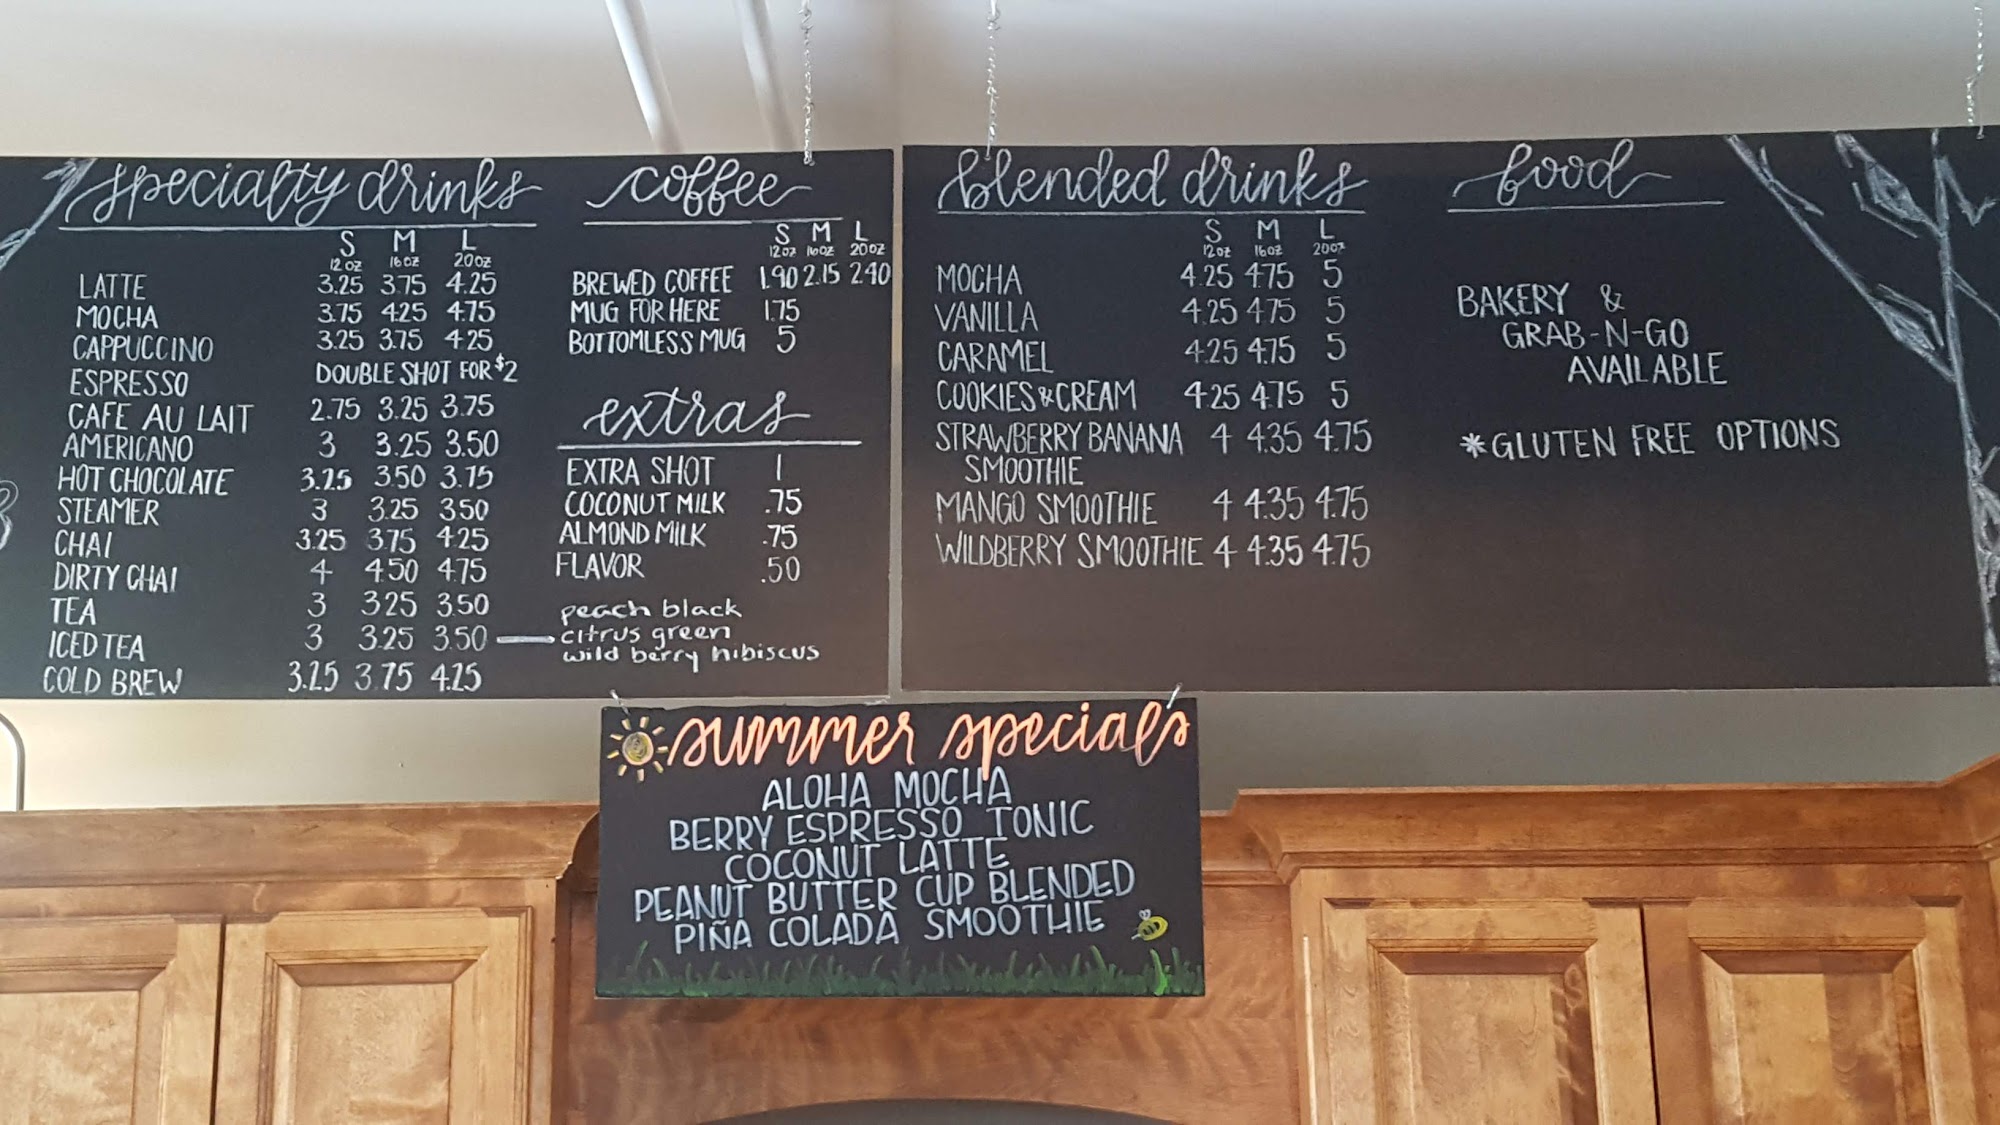 specialty drinks
S M L
12oz 16oz 20oz
LATTE 3.25 3.75 4.25
MOCHA 3.75 4.25 4.75
CAPPUCCINO 3.25 3.75 4.25
ESPRESSO DOUBLE SHOT FOR $2
CAFE AU LAIT 2.75 3.25 3.75
AMERICANO 3 3.25 3.50
HOT CHOCOLATE 3.25 3.50 3.75
STEAMER 3 3.25 3.50
CHAI 3.25 3.75 4.25
DIRTY CHAI 4 4.50 4.75
TEA 3 3.25 3.50
ICED TEA 3 3.25 3.50
COLD BREW 3.25 3.75 4.25
coffee
S M L
12oz 16oz 20oz
BREWED COFFEE 1.90 2.15 2.40
MUG FOR HERE 1.75
BOTTOMLESS MUG 5
extras
EXTRA SHOT 1
COCONUT MILK .75
ALMOND MILK .75
FLAVOR .50
peach black
citrus green
wild berry hibiscus
blended drinks
S M L
12oz 16oz 20oz
MOCHA 4.25 4.75 5
VANILLA 4.25 4.75 5
CARAMEL 4.25 4.75 5
COOKIES & CREAM 4.25 4.75 5
STRAWBERRY BANANA 4 4.35 4.75
SMOOTHIE
MANGO SMOOTHIE 4 4.35 4.75
WILDBERRY SMOOTHIE 4 4.35 4.75
food
BAKERY &
GRAB-N-GO
AVAILABLE
*GLUTEN FREE OPTIONS
summer specials
ALOHA MOCHA
BERRY ESPRESSO TONIC
COCONUT LATTE
PEANUT BUTTER CUP BLENDED
PIÑA COLADA SMOOTHIE